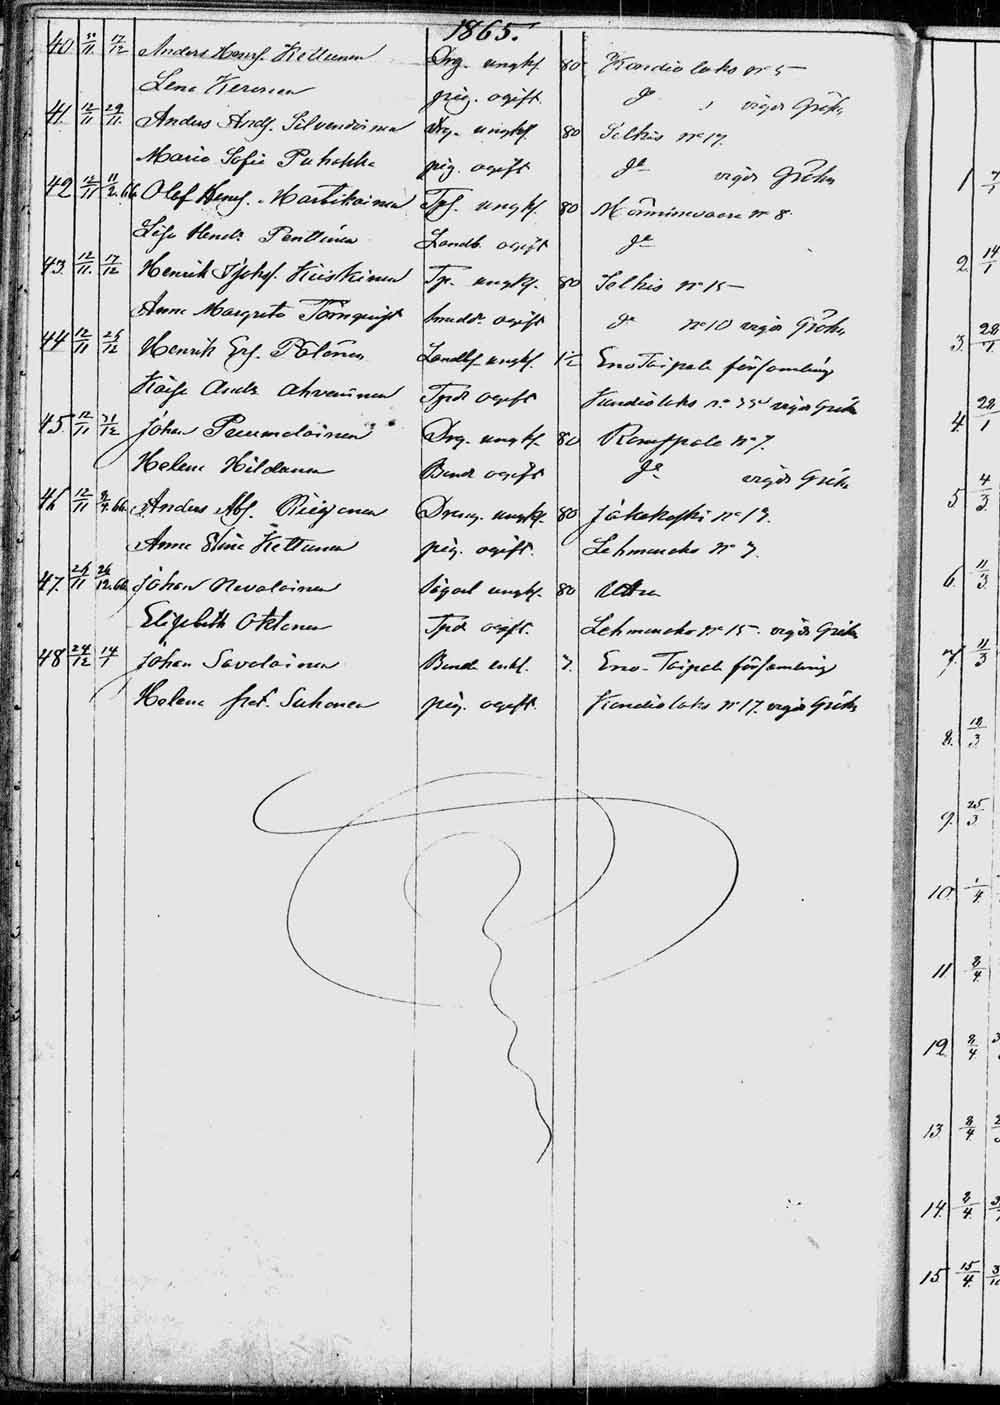 1865.
40 30/11 17/12 Anders Henr. Kettunen Drg. ungk. 80 Kondiolaks No 5
Lena Keronen pig. ogift do vigde Grekn
41. 12/11 29/11. Anders Andr. Silvendoinen Drg. ungk. 80 Selkis No 17.
Maria Sofia Puhakka pig. ogift do vigde Grekn
42 12/11 11/2.66 Olof Henr. Martikainen Tps. ungk. 80 Mönninvaara No 8.
Lisa Hendr. Penttinen Landb. ogift do
43. 12/11. 17/12 Henrik Kiiskinen Tp. ungk. 80 Selkis No 15
Anna Margreta Törnqvist ogift do No 10 vigde Grekn
44 12/11 25/12 Henrik Ers. Pölönen Landb. ungk. 1 1/2 Eno Taipale församling
Kaisa Andr. Ahveninen Tpdr ogift Kondiolaks No vigde Grekn
45. 12/11 31/12 Johan Puumalainen Drg. ungk. 80 No 7.
Helena Hildunen Bond ogift do vigde Grekn
46 12/11 2/4.66. Anders Abs. Dreng. ungk. 80 Jakokoski No 19.
Anna Stina Kettunen pig. ogift. Lehmonaho No 7.
47. 25/11 26/12.66 Johan Nevalainen ungk. 80 Utra
Elisabeth Oktonen Tpdr ogift. Lehmonaho No 15. vigde Grekn
48 24/12 14/1 Johan Savolainen Bond enkl. 7. Eno-Taipale församling
Helena Suhonen pig. ogift. Kondiolaks No 17. vigde Grekn
1
2 14/1
3. 28/1
4. 28/1
5 4/3
6. 11/3
7. 11/3
8. 18/3
9. 25/3
10 1/4
11 8/4
12 8/4
13 8/4
14. 8/4
15 15/4